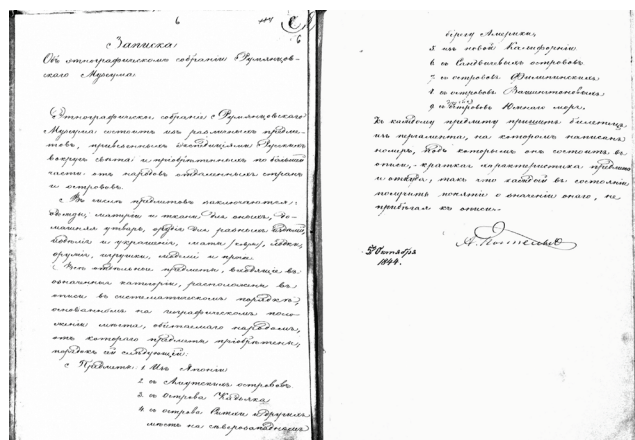 6
6
Записка
Объ этнографическомъ собраніи Румянцов-
скаго Музеума
Этнографическое собраніе Румянцовскаго
Музеума состоитъ изъ различныхъ предме-
товъ, привезенныхъ экспедиціями Русскими
вокругъ свѣта и пріобрѣтенныхъ по большей
части отъ народовъ отдаленныхъ странъ
и острововъ.
Въ числѣ предметовъ заключаются:
одежды, матеріи и ткани для оныхъ, до-
машняя утварь, орудія для разныхъ
и украшенія, маты, лодки,
оружія, игрушки, модели и проч.
Всѣ отдѣльные предметы, входящіе въ
означенныя категоріи, расположены въ
описи въ систематическомъ порядкѣ,
основанномъ на географическомъ поло-
женіи мѣста, обитаемаго народомъ,
отъ котораго предметы пріобрѣтены;
порядокъ сей слѣдующій:
Предметы: 1 Изъ Японіи
2 съ Алеутскихъ острововъ
3 съ острова Кадьяка
4 съ острова Ситхи и другихъ
мѣстъ на сѣверозападномъ
берегу Америки,
5 изъ новой Калифорніи
6 съ Сандвичевыхъ острововъ
7 съ острововъ Филиппинскихъ
8 съ острововъ Вашингтоновыхъ
9 съ острововъ Южнаго моря.
Къ каждому предмету пришитъ билетецъ
изъ пергамента, на которомъ написанъ
номеръ, подъ которымъ онъ состоитъ въ
описи, краткая характеристика предмета
и откуда, такъ что каждый въ состояніи
получить понятіе о значеніи онаго, не
прибѣгая къ описи.
Октября
1844.